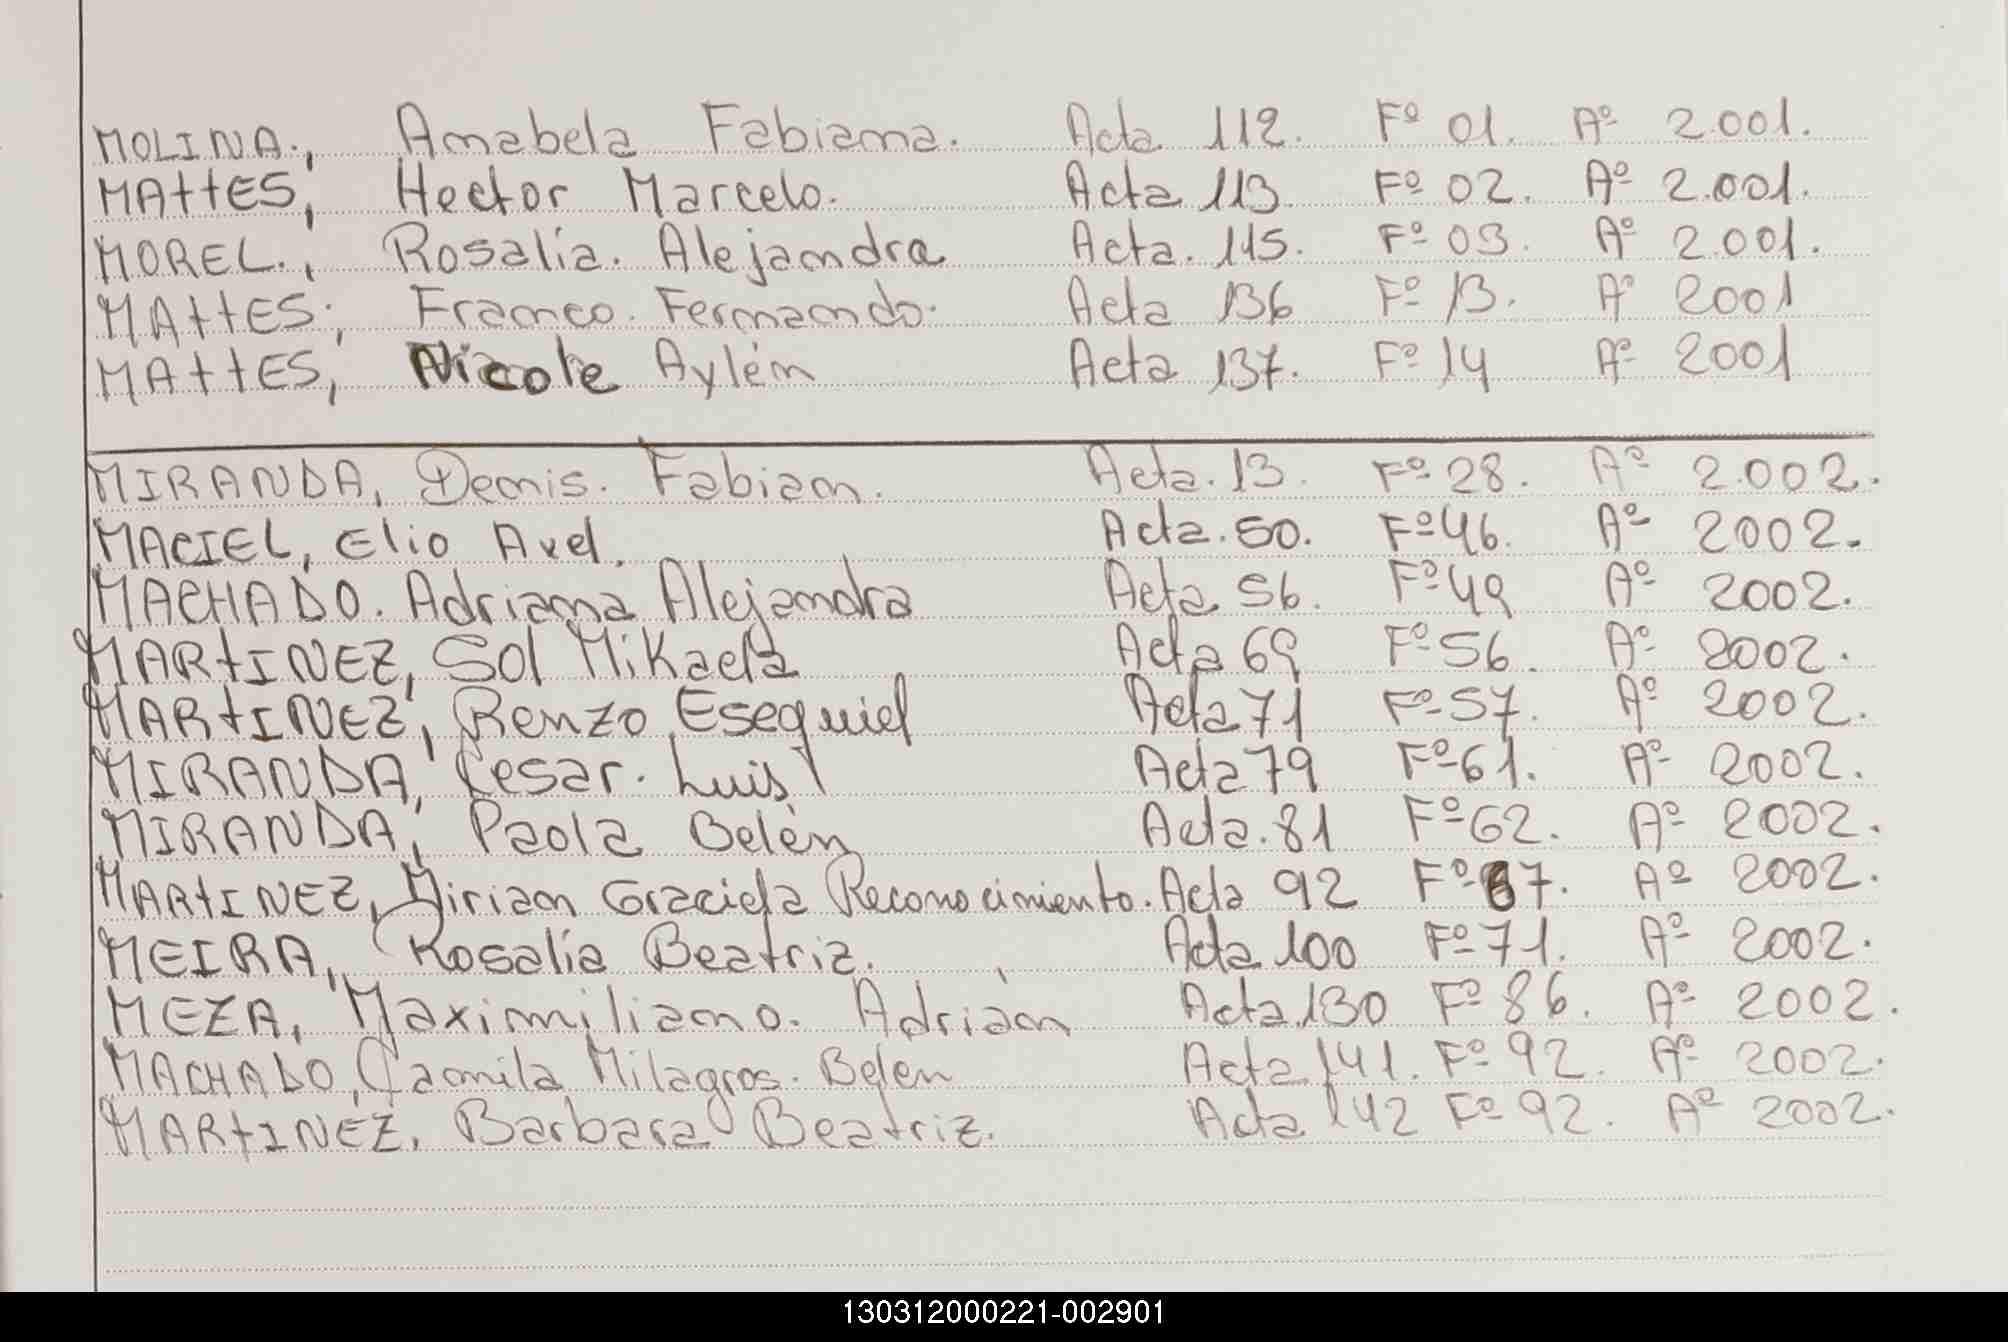 MOLINA., Anabela Fabiana. Acta 112. Fº 01. Aº 2.001.
MATTES, Hector Marcelo. Acta 113. Fº 02. Aº 2.001.
MOREL., Rosalía. Alejandra Acta. 115. Fº 03. Aº 2.001.
MATTES, Franco. Fernando. Acta 136 Fº 13. Aº 2001
MATTES, Nicole Aylén Acta 137. Fº 14 Aº 2001
MIRANDA, Denis. Fabian. Acta. 13. Fº 28. Aº 2.002.
MACIEL, Elio Axel. Acta. 50. Fº 46. Aº 2002.
MACHADO. Adriana Alejandra Acta 56. Fº 49 Aº 2002.
MARTINEZ, Sol Mikaela Acta 69 Fº 56. Aº 2002.
MARTINEZ, Renzo Esequiel Acta 71 Fº 57. Aº 2002.
MIRANDA, Cesar. Luis Acta 79 Fº 61. Aº 2002.
MIRANDA, Paola Belén Acta. 81 Fº 62. Aº 2002.
MARTINEZ, Miriam Graciela Reconocimiento. Acta 92 Fº 67. Aº 2002.
MEIRA, Rosalía Beatriz. Acta 100 Fº 71. Aº 2002.
MEZA, Maximiliano. Adrián Acta 130 Fº 86. Aº 2002.
MACHADO, Camila Milagros. Belen Acta 141. Fº 92. Aº 2002.
MARTINEZ, Barbara Beatriz. Acta 142 Fº 92. Aº 2002.
130312000221-002901